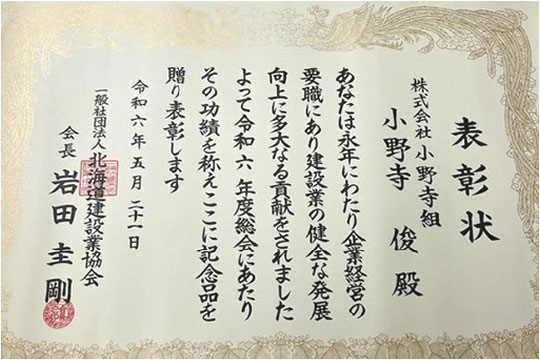 表彰状
株式会社小野寺組
小野寺 俊 殿
あなたは永年にわたり企業経営の
要職にあり建設業の健全な発展
向上に多大なる貢献をされました
よって令和六年度総会にあたり
その功績を称えここに記念品を
贈り表彰します
令和六年五月二十一日
一般社団法人北海道建設業協会
会長 岩田圭剛